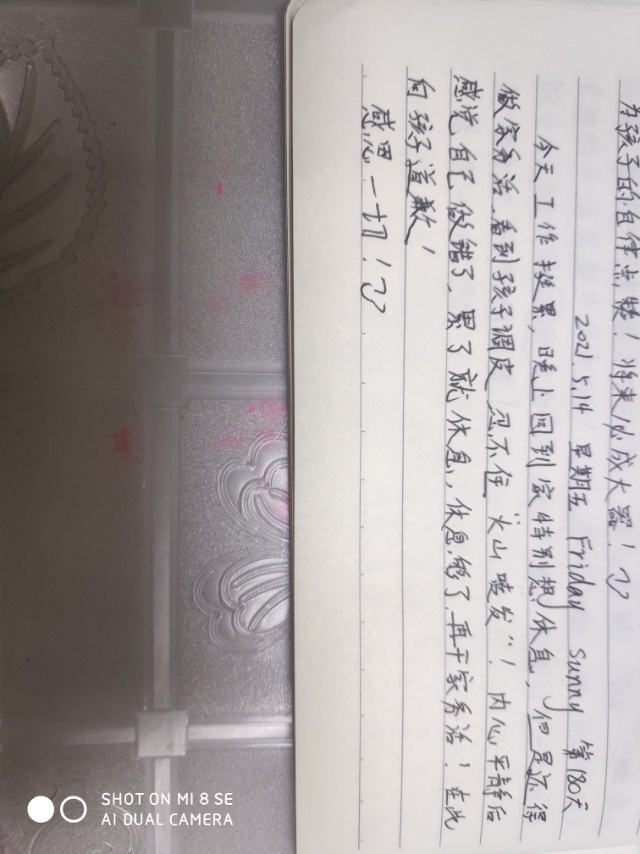 为孩子的自律点赞！将来必成大器！
2021.5.14 星期五 Friday sunny 第180天
今天工作挺累，晚上回到家特别想休息，但是还得
做家务活，看到孩子调皮 忍不住“火山喷发”！内心平静后
感觉自己做错了，累了就休息，休息够了再干家务活！在此
向孩子道歉！
感恩一切！
SHOT ON MI 8 SE
AI DUAL CAMERA